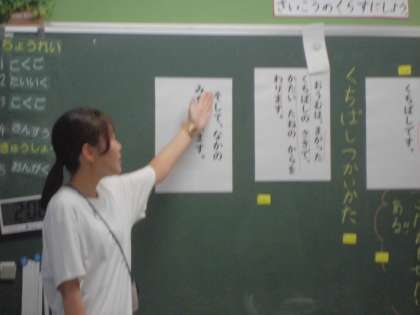 さいこうのくらすにしよう
ちょうれい
1 こくご
2 たいいく
3 こくご
4 さんすう
きゅうしょ
5 おんがく
くちばしです。
くちばしつかいかた
おうむは、まがった
くちばしの さきで、
かたい たねの からを
わります。
そして、なかの
み
ます。